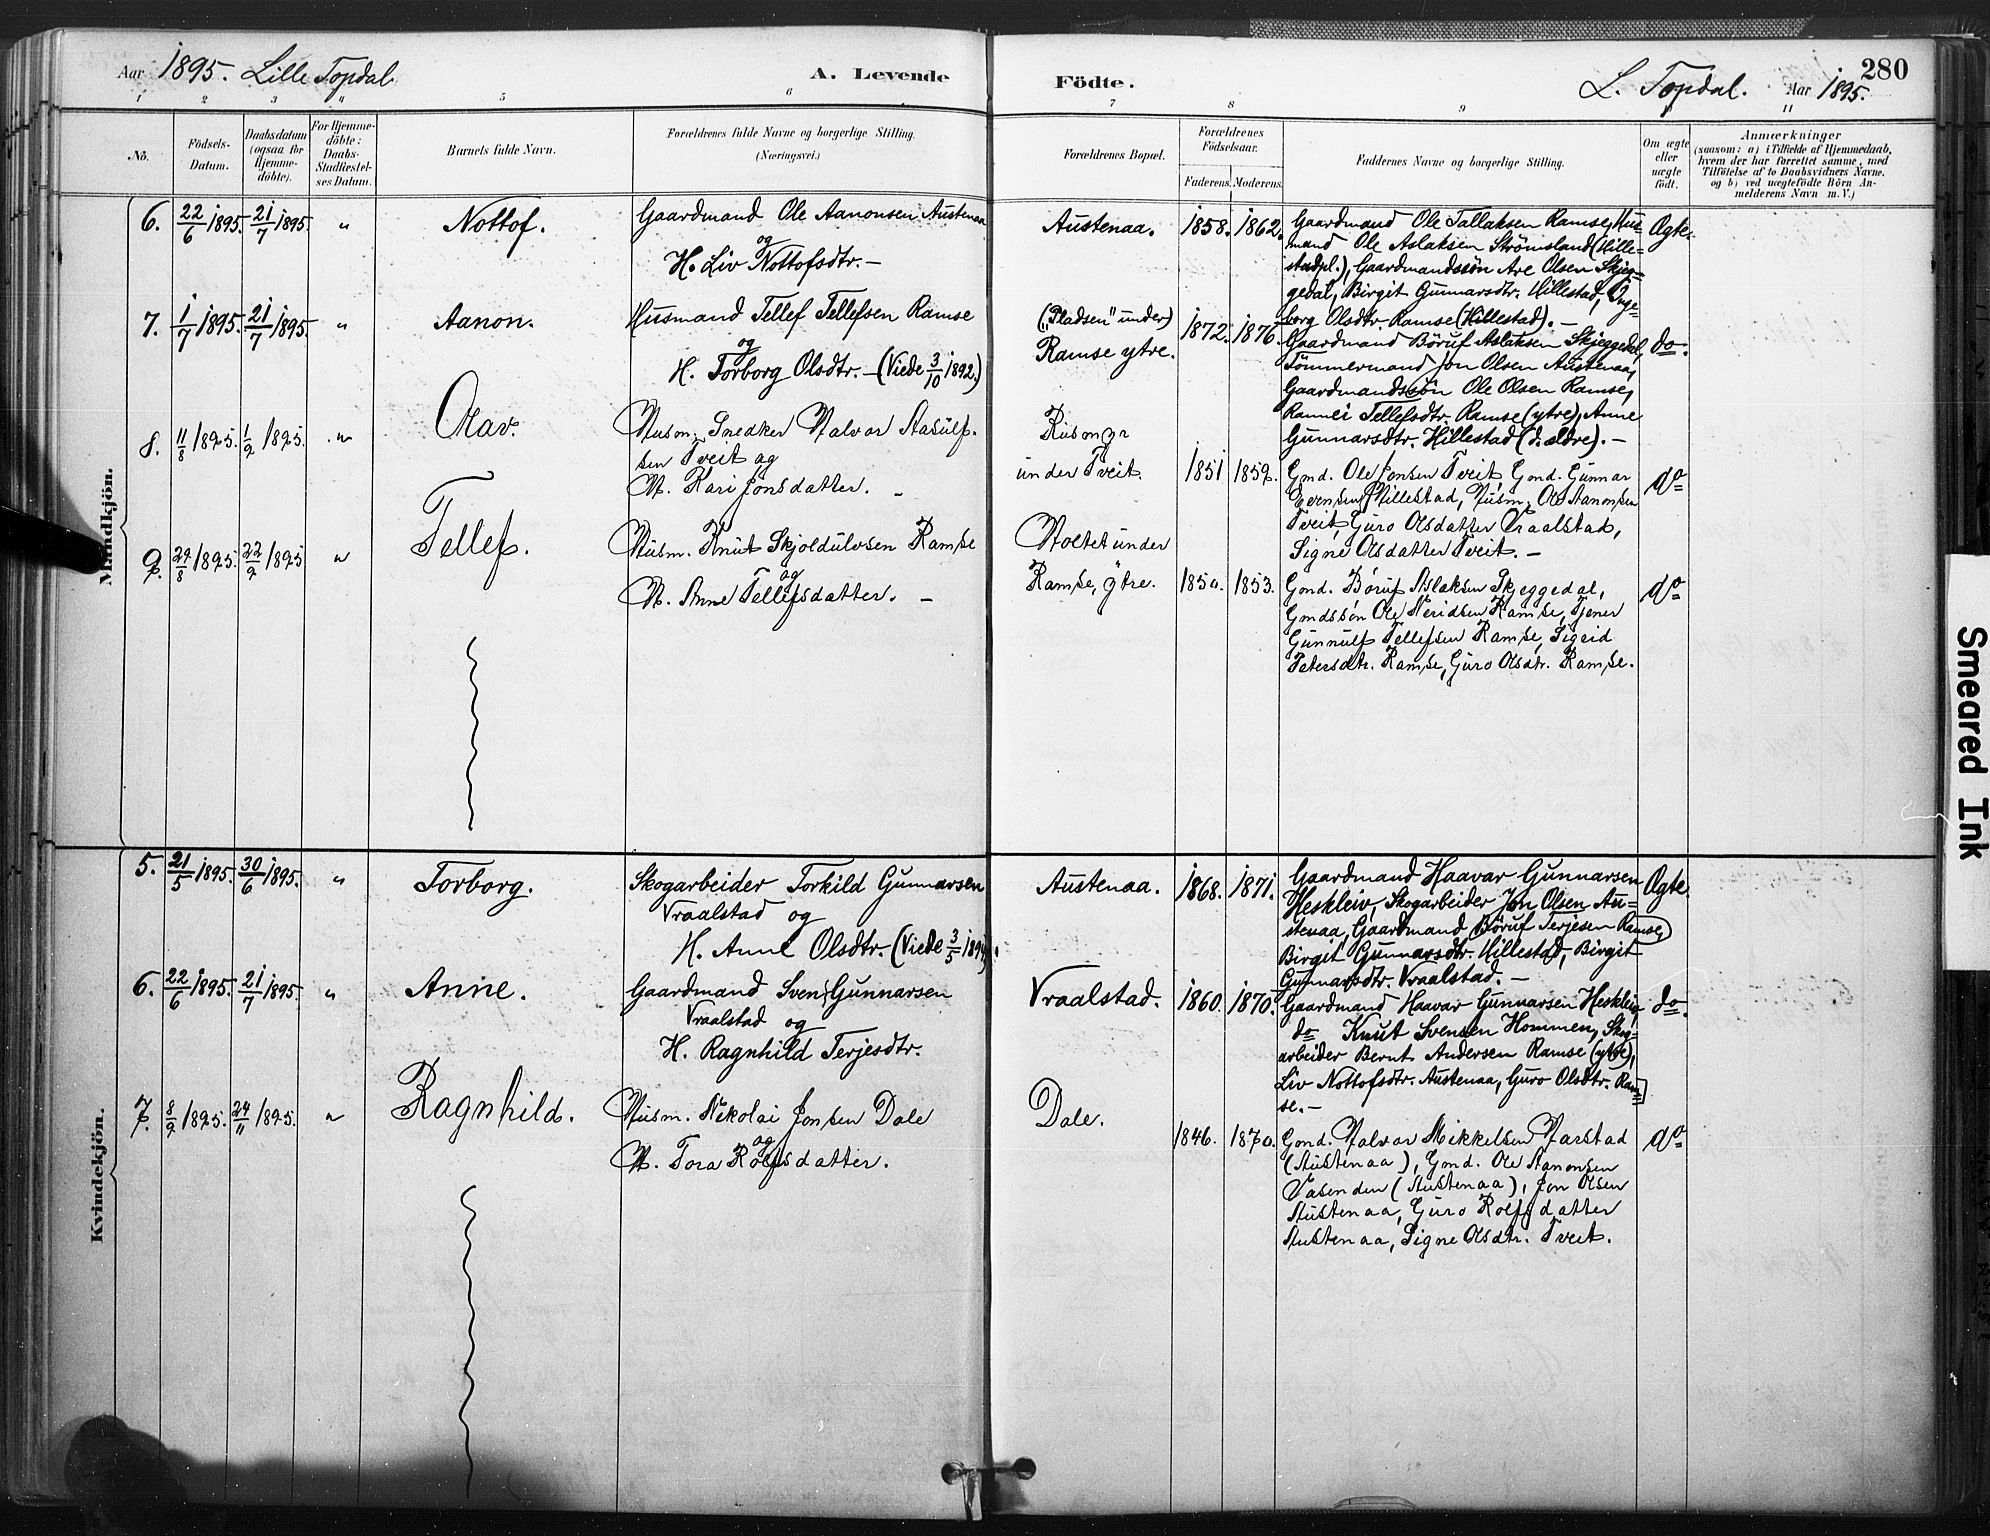 Aar 1895. Lille Topdal.
A. Levende
1 2 3 4 5 6
No.
Födsels-
Datum.
Daabsdatum
(ogsaa for
Hjemme-
döbte).
For Hjemme-
döbte:
Daabs-
Stadfæstel-
ses Datum.
Barnets fulde Navn.
Forældrenes fulde Navne og borgerlige Stilling.
(Næringsvei.)
Mandkjön.
6. 22/6 1895. 21/7 1895. " Nottof.
Gaardmand Ole Aanonsen Austenaa
og
H. Liv Nottofsdtr. –
7. 1/7 1895. 21/7 1895. " Aanon.
Husmand Tellef Tellefsen Ramse
og
H. Torborg Olsdtr. – (Viede 3/10 1892.)
8. 11/8 1895. 1/9 1895. " Olav.
Husm. Snedker Halvor Aasulf-
sen Tveit og
H. Kari Jonsdatter. –
9. 29/8 1895. 22/9 1895 " Tellef.
Husm. Knut Skjoldulvsen Ramse
og
H. Anne Tellefsdatter. –
Kvindekjön.
5. 21/5 1895. 30/6 1895. " Torborg.
Skogarbeider Torkild Gunnarsen
Vraalstad og
H. Anne Olsdtr. (Viede 3/5 1894).
6. 22/6 1895. 21/7 1895. " Anne.
Gaardmand Sven Gunnarsen
Vraalstad og
H. Ragnhild Terjesdtr.
7. 8/9 1895. 24/11 1895. " Ragnhild.
Husm. Nikolai Jonsen Dale
og
H. Tora Rolfsdatter.
Födte.
L. Topdal. Aar 1895.
280
7 8 9 11
Forældrenes Bopæl.
Forældrenes
Födselsaar.
Faderens. Moderens.
Faddernes Navne og borgerlige Stilling.
Om ægte
eller
uægte
födt.
Anmærkninger
(saasom: a) i Tilfælde af Hjemmedaab,
hvem der har forrettet samme, med
Tilföielse af to Daabsvidners Navne.
og b) ved uægtefödte Börn An-
melderens Navn m. V.)
Austenaa. 1858. 1862.
Gaardmand Ole Tallaksen Ramse, Hus-
mand Ole Aslaksen Strömsland (Hille-
stadpl.), Gaardmandssön Are Olsen Skjeg-
gedal, Birgit Gunnarsdtr. Hillestad, Inge-
borg Olsdtr. Ramse (Hillestad). –
Ægte.
("Pladsen" under)
Ramse ytre. 1872. 1876.
Gaardmand Böruf Aslaksen Skjeggedal,
Tömmermand Jon Olsen Austenaa,
Gaardmandssön Ole Olsen Ramse,
Rannei Tellefsdtr. Ramse (ytre), Anne
Gunnarsdtr. Hillestad (d. eldre). –
do.
under Tveit. 1851 1859.
Gmd. Ole Jonsen Tveit, Gmd. Gunnar
Evensen Hillestad, Husm. Ole Aanonsen
Tveit, Guro Olsdatter Vraalstad,
Signe Olsdatter Tveit. –
do
Moltet under
Ramse, ytre. 1850. 1853.
Gmd. Böruf Aslaksen Skjeggedal,
Gmdssön Ole Neridsen Ramse, Tjener
Gunnulf Tellefsen Ramse, Sigrid
Petersdtr. Ramse, Guro Olsdtr. Ramse.
do
Austenaa. 1868. 1871.
Gaardmand Haavar Gunnarsen
Heskleiv, Skogarbeider Jon Olsen Au-
stenaa, Gaardmand Böruf Terjesen Ramse,
Birgit Gunnarsdtr. Hillestad, Birgit
Gunnarsdtr. Vraalstad. –
Ægte.
Vraalstad. 1860. 1870.
Gaardmand Haavar Gunnarsen Heskleiv,
do Knut Svensen Hommen, Skog-
arbeider Bernt Andersen Ramse (ytre),
Liv Nottofsdtr. Austenaa, Guro Olsdtr. Ram-
se. –
do.
Dale. 1846. 1870.
Gmd. Halvor Mikkelsen Harstad
(Austenaa), Gmd. Ole Aanonsen
Vasenden (Austenaa), Jon Olsen
Austenaa, Guro Rolfsdatter
Austenaa, Signe Olsdtr. Tveit.
do
Smeared Ink